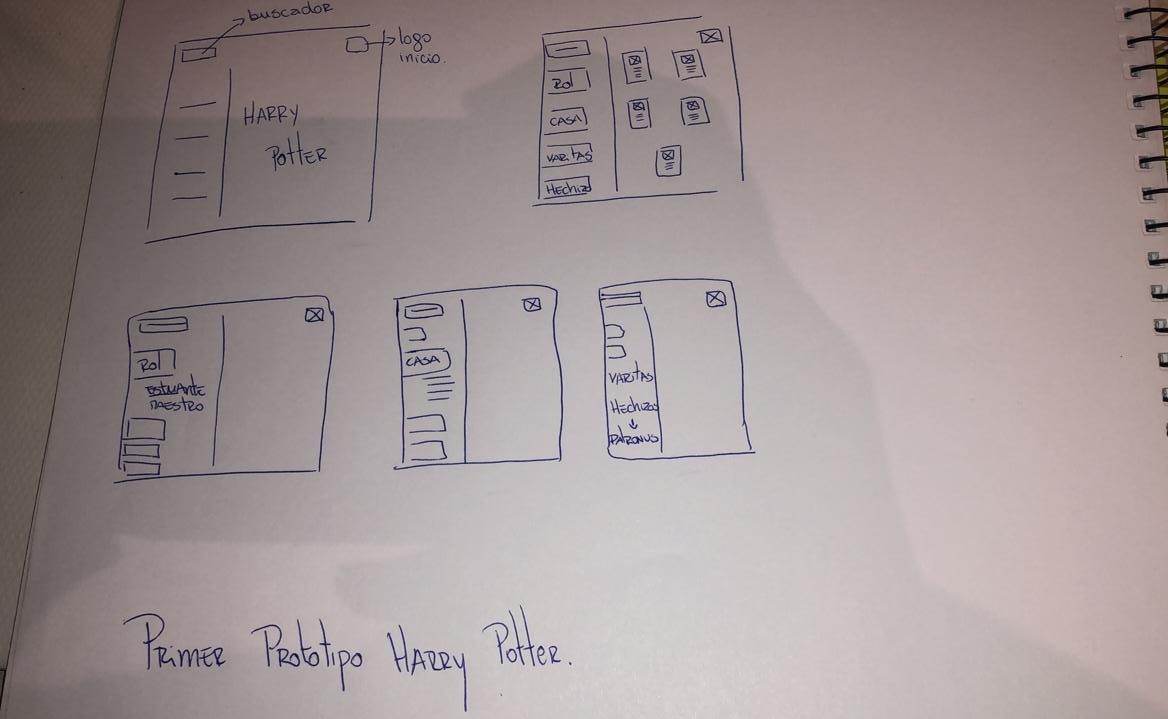 buscador
logo
inicio.
HARRY
Potter
Rol
CASA
VARITAS
Hechizo
Rol
ESTUDIANTE
MAESTRO
CASA
VARITAS
Hechizos
PATRONUS
Primer Prototipo HARRY Potter.